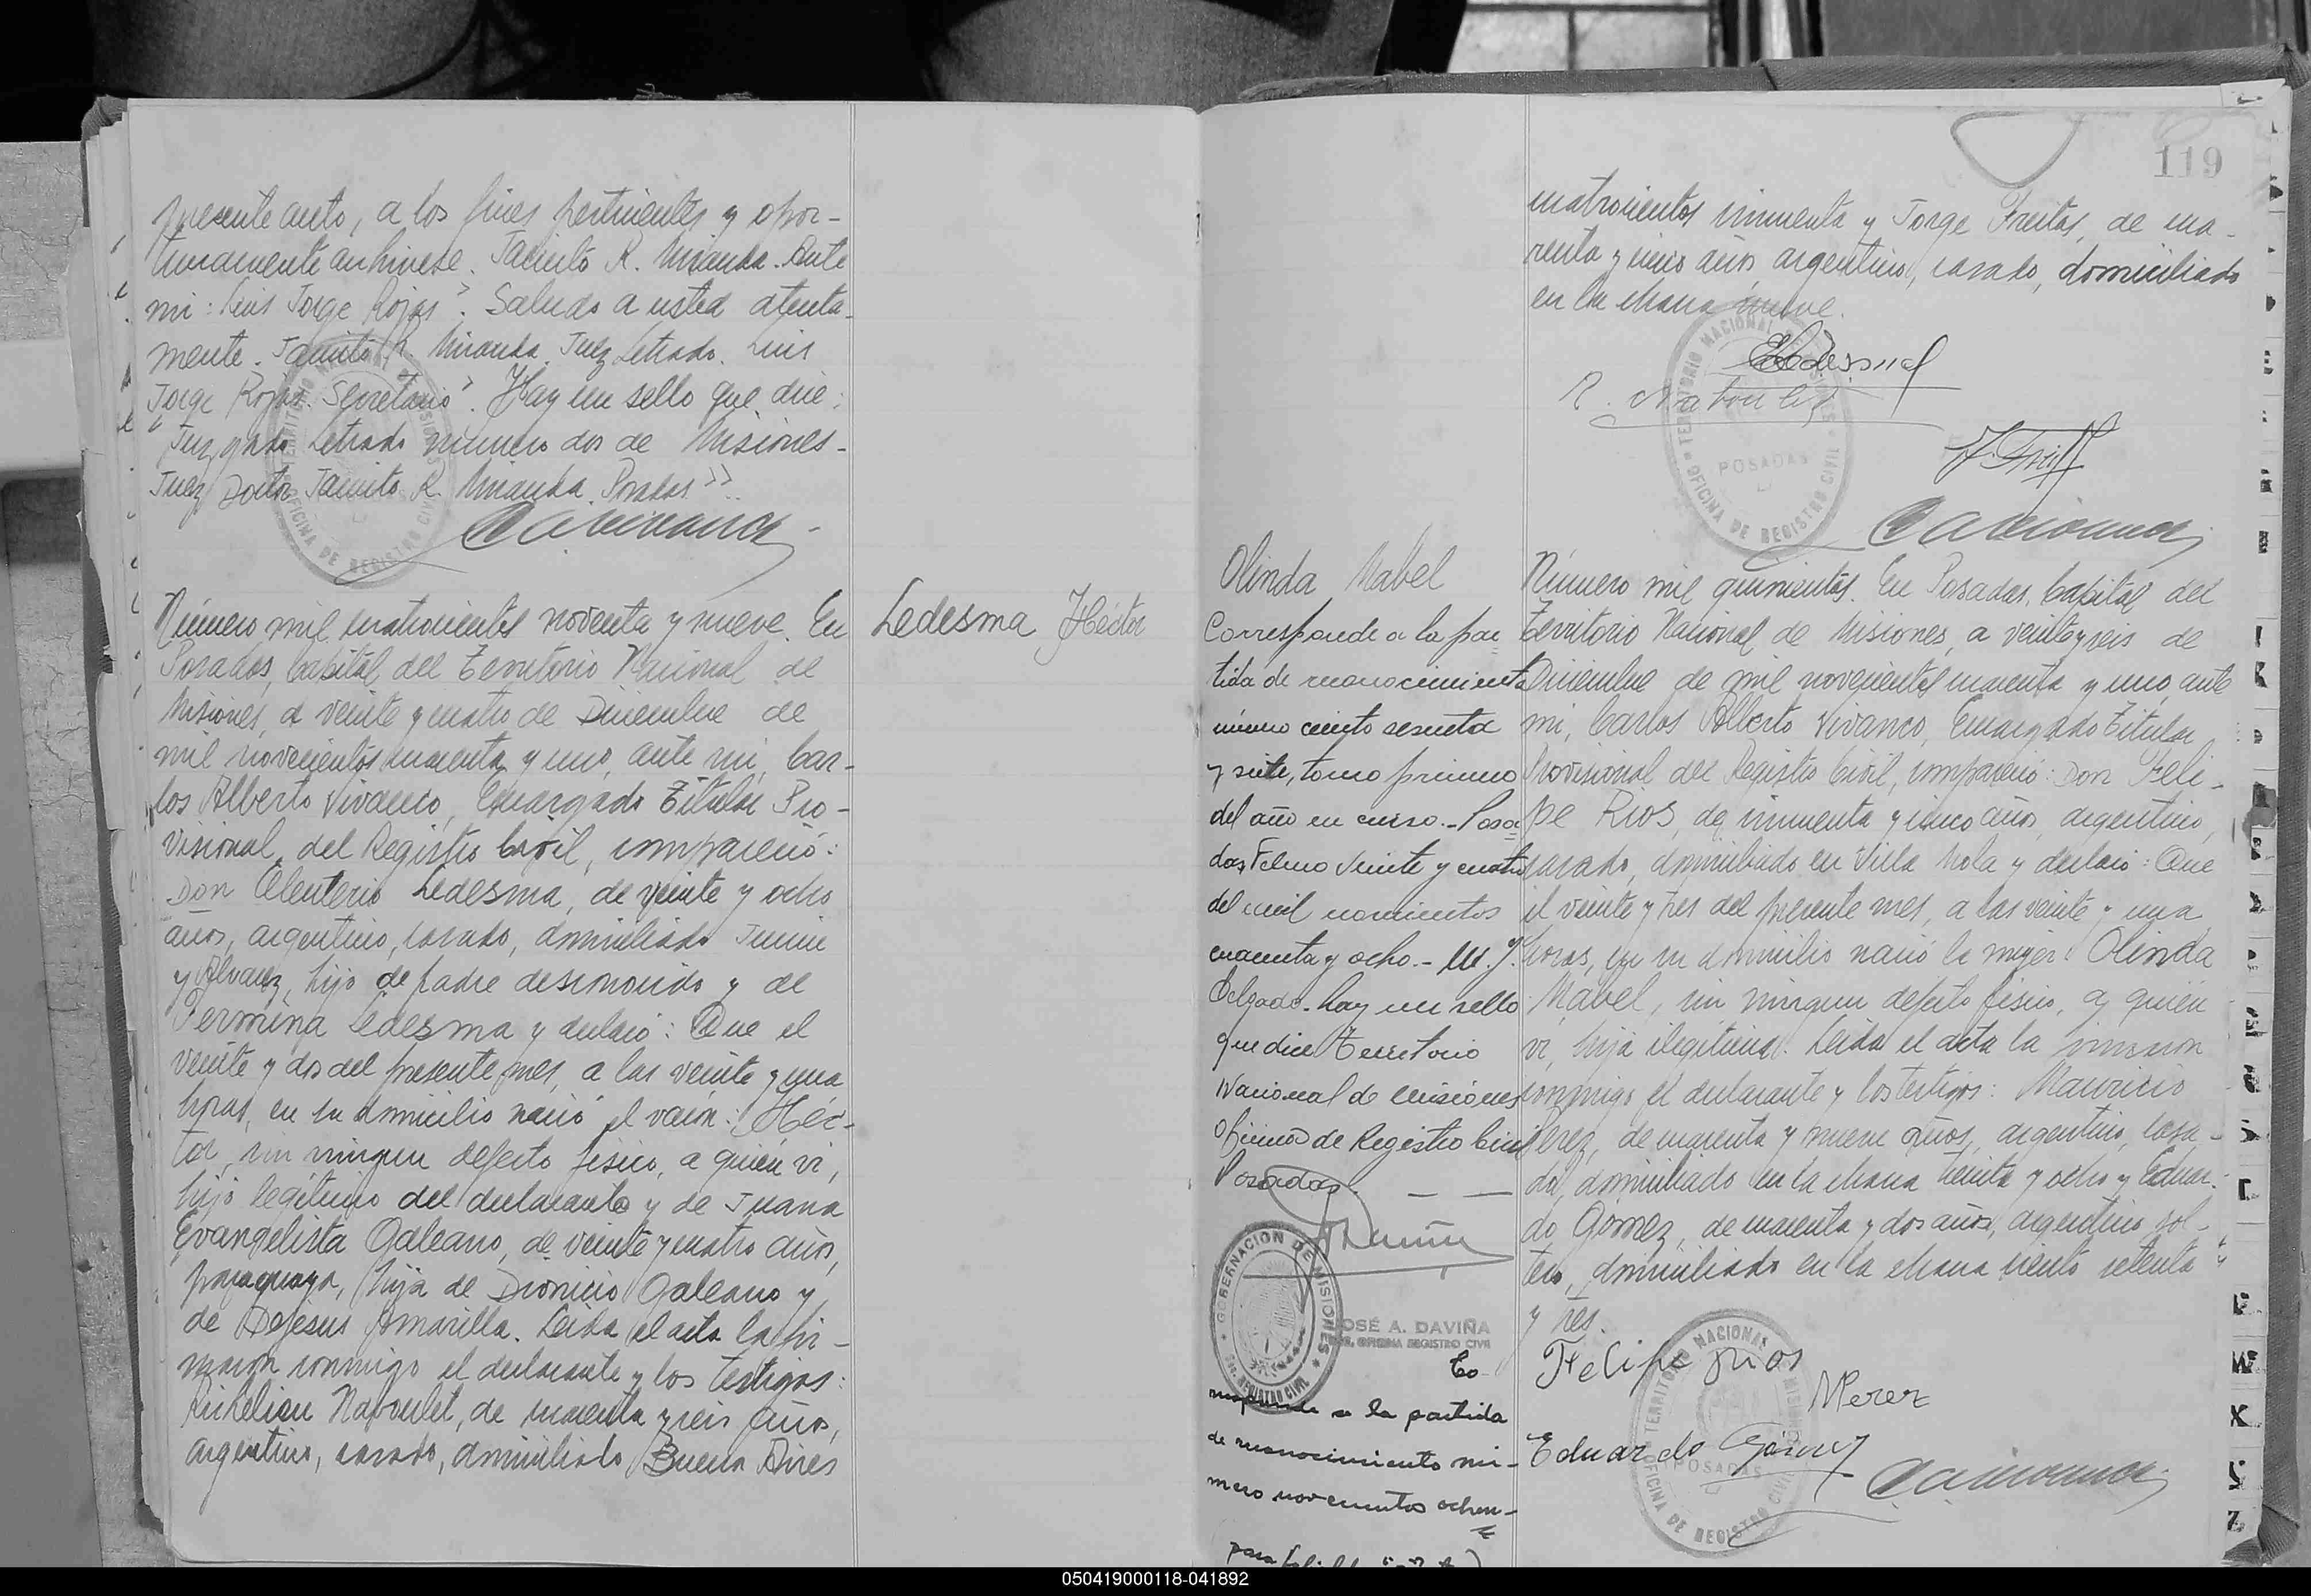 presente auto, a los fines pertinentes y opor-
tunamente archívese. Jacinto R. Miranda. Ante
mi: Luis Jorge Rojas". Saludo a usted atenta-
mente. Jacinto R. Miranda. Juez Letrado. Luis
Jorge Rojas. Secretario". Hay un sello que dice:
"Juzgado Letrado número dos de Misiones-
Juez Doctor Jacinto R. Miranda. Posadas".
Número mil cuatrocientos noventa y nueve. En
Posadas, Capital del Territorio Nacional de
Misiones, a veinte y cuatro de Diciembre de
mil novecientos cuarenta y uno, ante mi, Car-
los Alberto Vivanco, Encargado Titular Pro-
visional del Registro Civil, compareció:
Don Eleuterio Ledesma, de veinte y ocho
años, argentino, casado, domiciliado Junin
y Alvarez, hijo de padre desconocido y de
Fermina Ledesma y declaró: Que el
veinte y dos del presente mes, a las veinte y una
horas, en su domicilio nació el varón: Héc-
tor, sin ningun defecto fisico, a quién vi,
hijo legitimo del declarante y de Juana
Evangelista Galeano, de veinte y cuatro años,
paraguaya, hija de Dionicio Galeano y
de Dejesus Amarilla. Leida el acta la fir-
maron conmigo el declarante y los testigos:
Richelieu Naboulet, de cuarenta y seis años,
argentino, casado, domiciliado Buenos Aires
Ledesma Héctor
119
cuatrocientos cincuenta y Jorge Freitas, de cua-
renta y cinco años, argentino, casado, domiciliado
en la chacra nueve.
ELedesma
TERRITORIO NACIONAL DE MISIONES
POSADAS
OFICINA DE REGISTRO CIVIL
Olinda Mabel
Corresponde a la par
tida de reconocimiento
número ciento sesenta
y siete, tomo primero
del año en curso.- Posa
das, Febrero veinte y cuatro
del mil novecientos
cuarenta y ocho.- M. J.
Delgado. hay un sello
que dice Territorio
Nacional de Misiones
Oficina de Registro Civil
Posadas.
GOBERNACION DE MISIONES
REGISTRO CIVIL
JOSÉ A. DAVIÑA
OFICINA REGISTRO CIVIL
Co-
rresponde a la partida
de reconocimiento nú-
mero novecientos ochen-
Número mil quinientos. En Posadas, Capital del
Territorio Nacional de Misiones, a veinte y seis de
Diciembre de mil novecientos cuarenta y uno, ante
mi, Carlos Alberto Vivanco, Encargado Titular
Provisional del Registro Civil, compareció: Don Feli-
pe Rios, de cincuenta y cinco años, argentino,
casado, domiciliado en Villa Mola y declaró: Que
el veinte y tres del presente mes, a las veinte y una
horas, en su domicilio nació la mujer: Olinda
Mabel, sin ningun defecto fisico, a quién
vi, hija ilegitima. Leida el acta la firmaron
conmigo el declarante y los testigos: Mauricio
Perez, de cuarenta y nueve años, argentino, casa-
do, domiciliado en la chacra treinta y ocho y Eduar-
do Gomez, de cuarenta y dos años, argentino, sol-
tero, domiciliado en la chacra ciento setenta
y tres.
Felipe Rios
MPerez
Eduardo Gómez
TERRITORIO NACIONAL DE MISIONES
POSADAS
OFICINA DE REGISTRO CIVIL
050419000118-041892